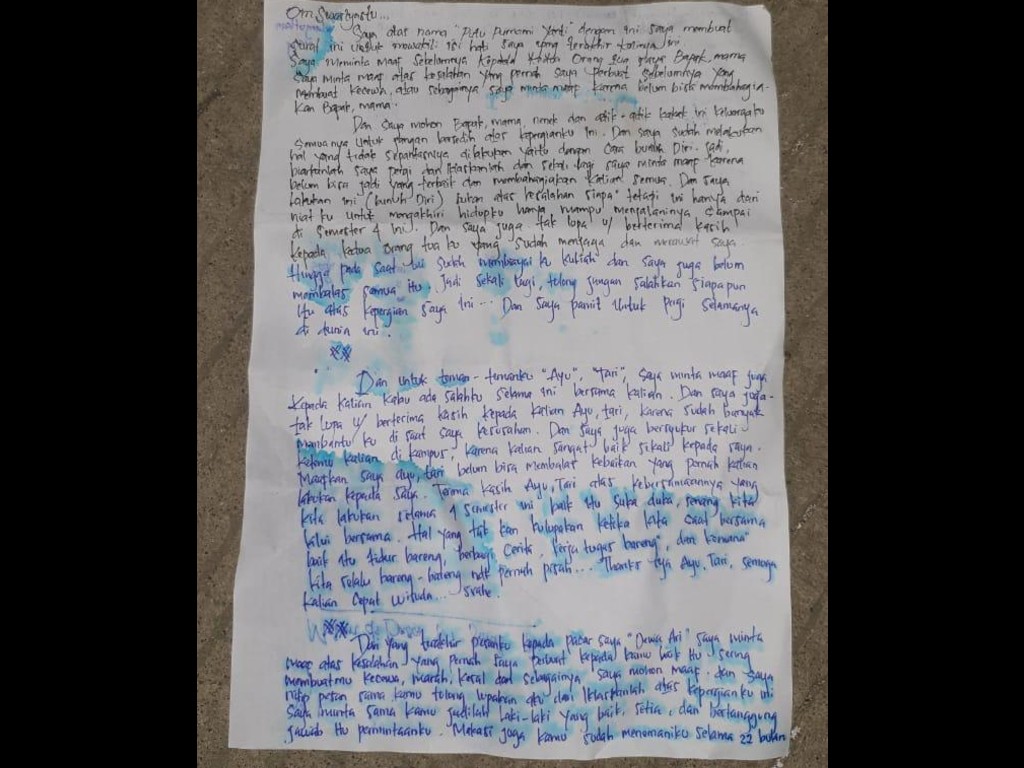 Om Swastyastu...
Saya atas nama "Putu Purnami Yanti" dengan ini saya membuat
surat ini untuk mewakili isi hati saya yang terakhir kalinya ini
Saya meminta maaf sebelumnya kepada kedua orang tua saya Bapak, mama
Saya minta maaf atas kesalahan yang pernah saya perbuat sebelumnya yang
membuat kecewa, atau sebagainya saya minta maaf karena belum bisa membahagia-
kan Bapak, mama.
Dan saya mohon Bapak, mama, nenek dan adik-adik kakak ini keluargaku
semuanya untuk jangan bersedih atas kepergianku ini. Dan saya sudah melakukan
hal yang tidak sepantasnya dilakukan yaitu dengan cara bunuh Diri. Jadi,
biarkanlah saya pergi dan Iklaskanlah dan sekali lagi saya minta maaf karena
belum bisa jadi yang terbaik dan membahagiakan kalian semua. Dan saya
lakukan ini (bunuh Diri) bukan atas kesalahan siapa" tetapi ini hanya dari
niat ku untuk mengakhiri hidupku hanya mampu menjalaninya sampai
di semester 4 ini. Dan saya juga tak lupa u/ berterima kasih
kepada kedua orang tua ku yang sudah menjaga dan merawat saya
Hingga pada saat ini sudah membiayai ku kuliah dan saya juga belum
membalas semua itu. Jadi sekali lagi, tolong jangan salahkan siapapun
itu atas kepergian saya ini... Dan saya pamit untuk pergi selamanya
di dunia ini.
Dan untuk teman-temanku "Ayu", "Tari", saya minta maaf juga
kepada kalian kalau ada salahku selama ini bersama kalian. Dan saya juga
tak lupa u/ berterima kasih kepada kalian Ayu, tari, karena sudah banyak
membantu ku di saat saya kesusahan. Dan saya juga bersyukur sekali
ketemu kalian di kampus, karena kalian sangat baik sekali kepada saya.
Maafkan saya ayu, tari belum bisa membalas kebaikan yang pernah kalian
lakukan kepada saya. Terima kasih Ayu, Tari atas kebersamaannya yang
kita lakukan selama 4 semester ini baik itu suka duka, senang kita
lalui bersama. Hal yang tak kan kulupakan ketika kita saat bersama
baik itu tidur bareng, berbagi cerita, kerja tugas bareng", dan kemana"
kita selalu bareng-bareng ndk pernah pisah... Thanks ya Ayu, Tari, semoga
kalian Cepat Wisuda...
Dan yang terakhir pesanku kepada pacar saya "Dewa Ari" saya minta
maaf atas kesalahan yang pernah saya perbuat kepada kamu baik itu sering
membuatmu kecewa, marah, kesal dan sebagainya saya mohon maaf. dan saya
pesan sama kamu tolong lupakan aku dan Iklaskanlah atas kepergianku ini
Saya minta sama kamu jadilah laki-laki yang baik, setia, dan bertanggung
jawab itu permintaanku. Makasi juga kamu sudah menemaniku selama 22 bulan